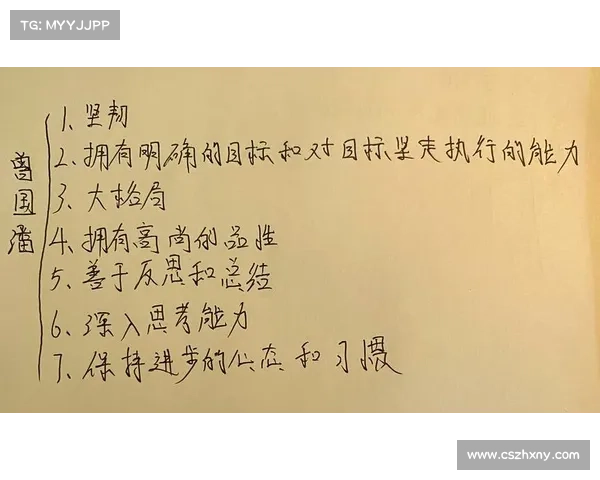 TG: MYYJJPP
曾国藩
1、坚韧
2、拥有明确的目标和对目标坚定执行的能力
3、大格局
4、拥有高尚的品性
5、善于反思和总结
6、深入思考能力
7、保持进步的心态和习惯
www.cszhxny.com